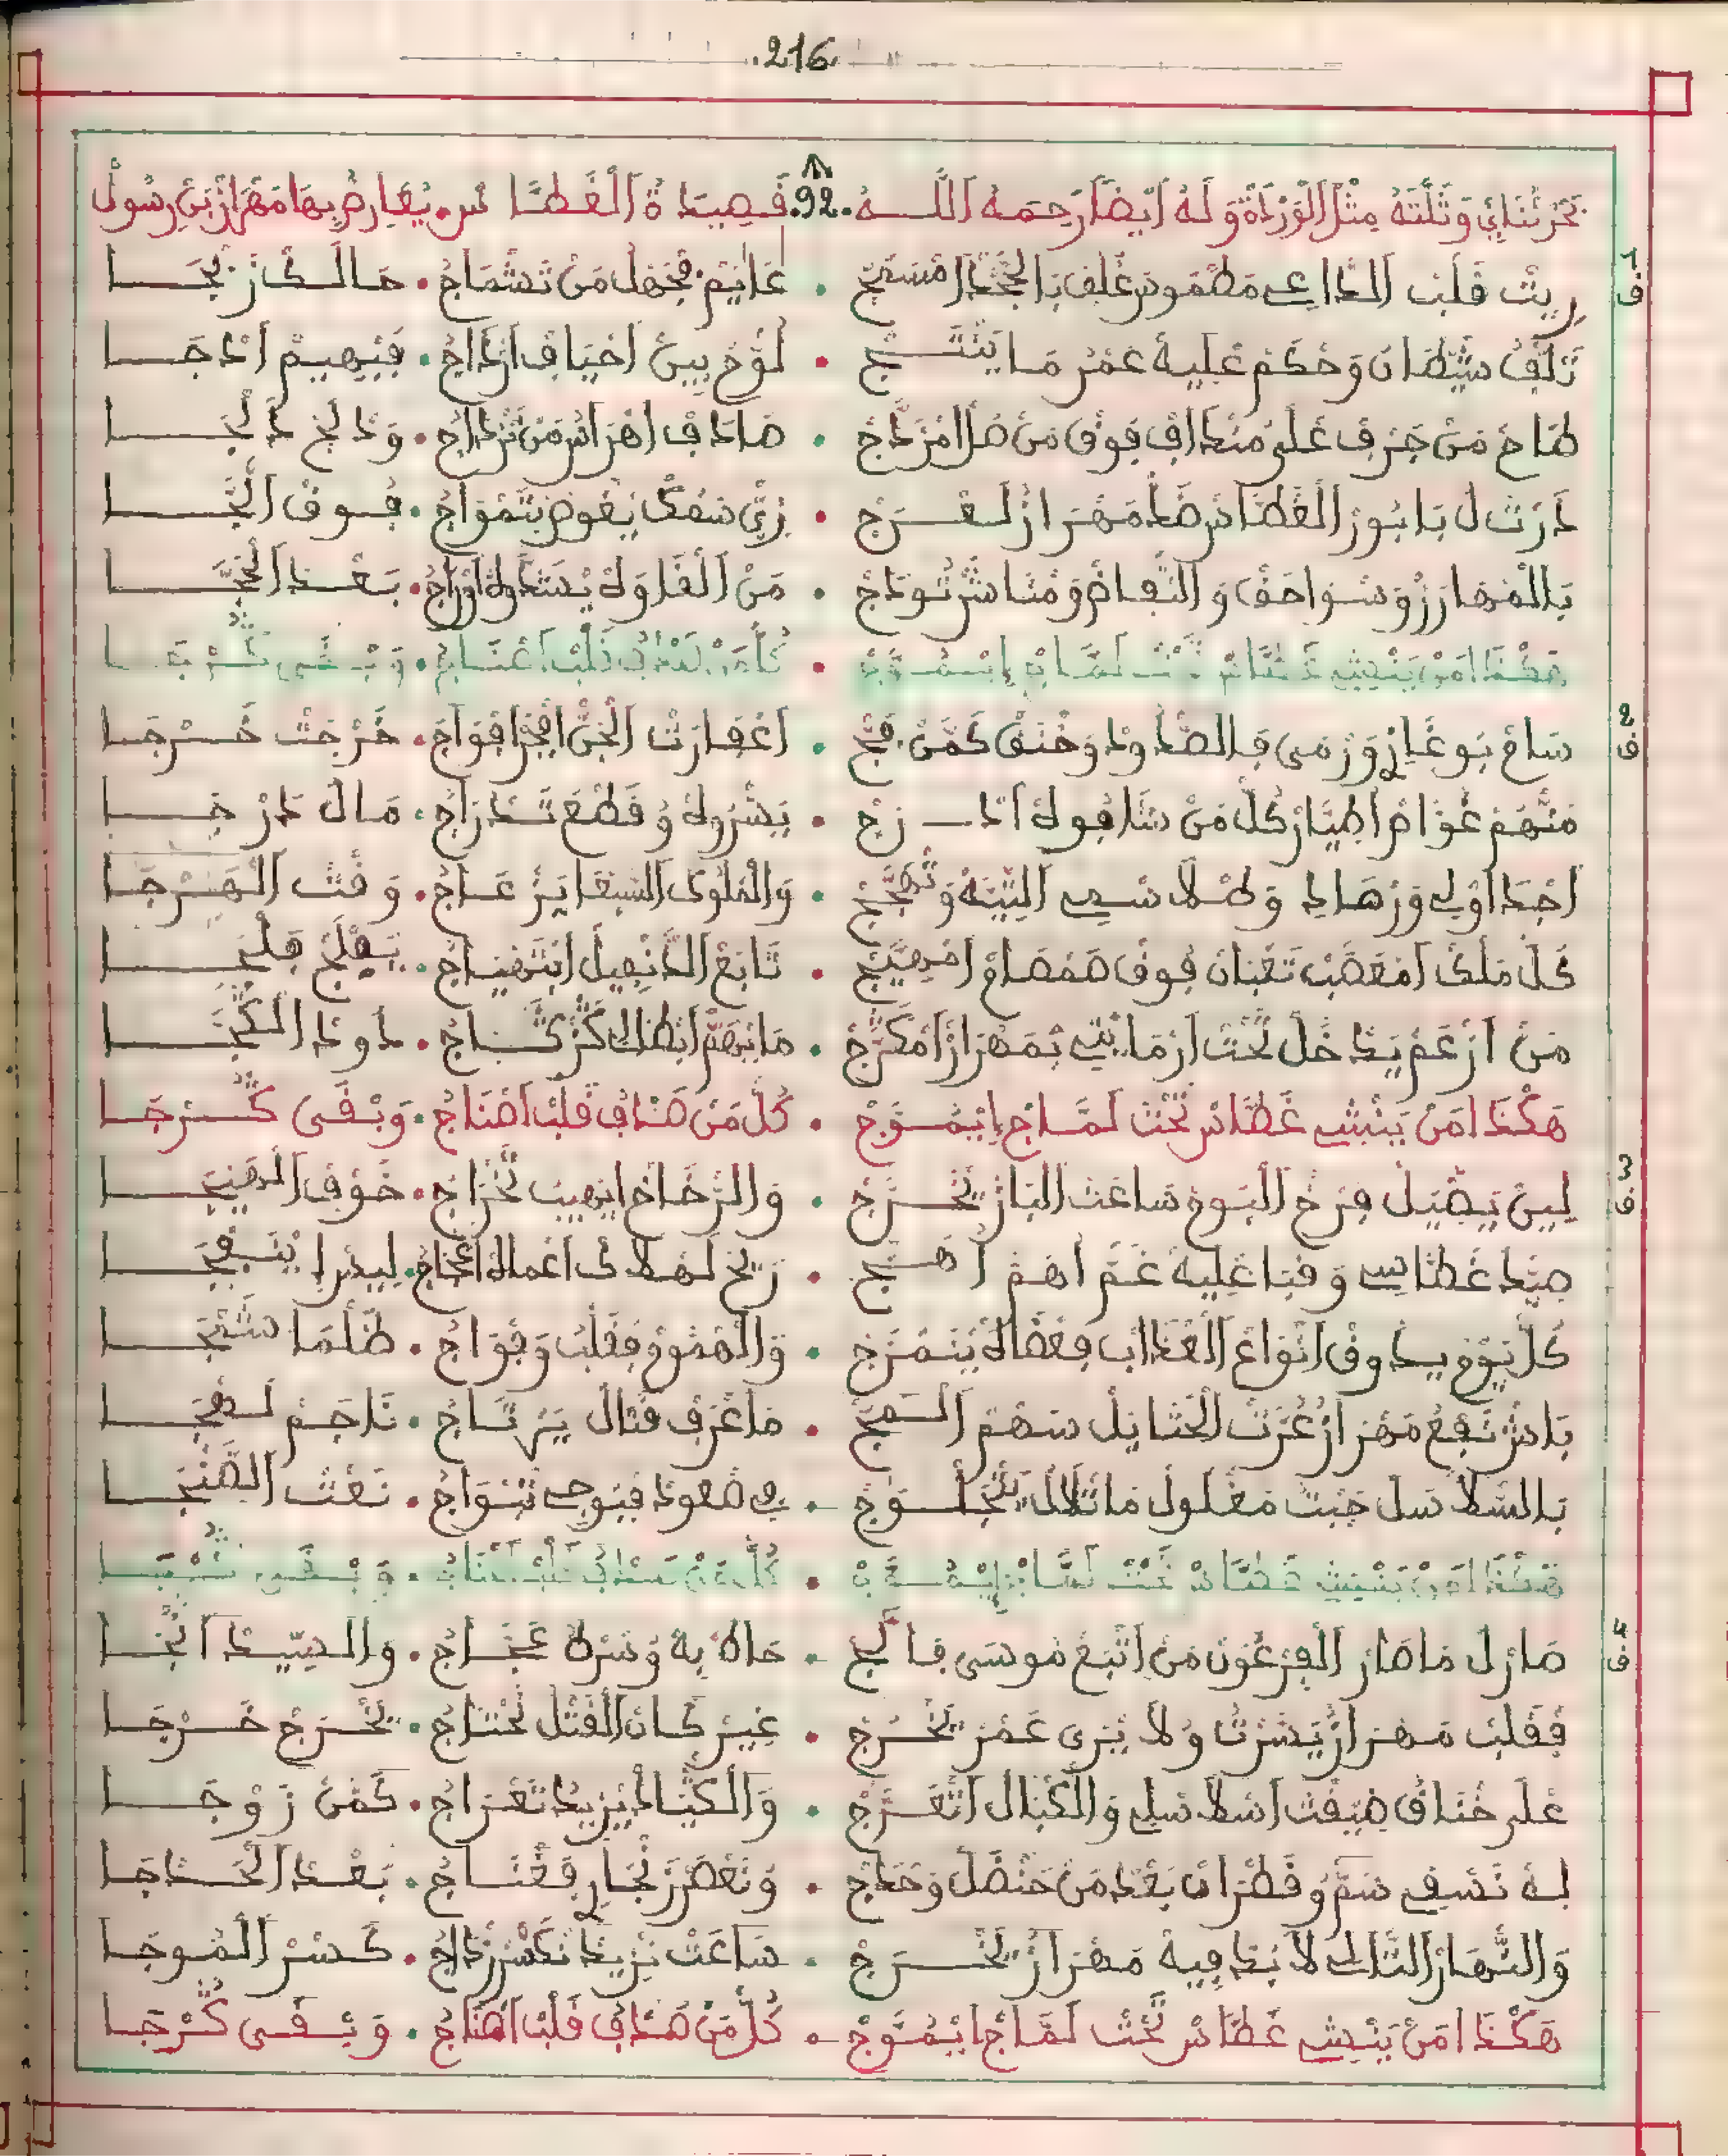 .216.
بحر ثنائي وثلته مثل الوردة وله أيضا رحمه الله .92. قصيدة الغطاس يعارض بها مهراز بن رسول
ف1
ريت قلب الداعي مطموس غلف بالجحد امسيج . غايم مجهل من تشماج . حالكاز بجا
تلف شيطان وحكم عليه عمر ما ينتج . لوح بين احياف ارداج . فبهيم ادجا
طاح من جرف على منداف فوق من صل امزدج . صادف اهراس من تزداج . ودلج دلجا
درت ل بابور الغطاس ضد مهراز لعرج . زي سمك يغوص بتمواج . فوق اللجا
بالمهارز وسواحق والنفاض ومناشر تودج . من الفلا وله يستاوله اوراج . بعد النجا
هكذا من ينبش غطاس تحت لماج ايموج . كل من صداف قلب اهناج . وبقى كرجا
ف2
ساع بوغاز ورمى فالصد ولد وخنق كمن فج . اعفارت الجن افجر افواج . خرجت خرجا
منهم غواص اطيار كل من شافوله ادرج . يشروله وقطع تدراج . مال درجا
احدا اولي وزهاد وطلاسي النيه وتهجج . والملوك السبعا يزعاج . وقت الهرجا
كل ملك امعصب تعبان فوق همصاع امهيج . تابع الدنفيل ابتهياج . يفلج فلجا
من ازعم يدخل تحت ارمايتي بمهراز امكرج . ما يهم ابطالي كركاج . داود الكجا
هكذا من ينبش غطاس تحت لماج ايموج . كل من صداف قلب اهناج . وبقى كرجا
ف3
لين يضيل فرخ البوم ساعت الباز يخرج . والرخاخ ايهيب تخراج . خوف المهيجا
صيد غطاسي وفبا عليه غم اهم اهج . ريح لهلاك اعماله اعجاج . ليس ا ينفجا
كل يوم يدوق انواع العذاب فعضاه يتمزج . والهموم فقلب وفواج . طلما شجا
باش تفع مهراز عزت الحتايل سهم السمج . ما عرف قتال يرتاج . ناجم لهجا
بالسلاسل جبت مغلول ما تلالي تخلوج . في صعود فيوجي تبواج . نعت الصنجا
هكذا من ينبش غطاس تحت لماج ايموج . كل من صداف قلب اهناج . وبقى كرجا
ف4
صارل ما صار الفرعون من اتبع موسى فالج . حاط به وشرط عجاج . والسيد انجا
فقلب مهراز يشرت ولا يرى عمر يخرج . غير كان القتل تحتاج . يخرج خرجا
على خناق ضيقت اسلاسلي والكبال اتعرج . والكياد يزيد تعراج . كمن زوجا
له نسقي سم وقطران بعد من حنضل وحدج . ونعصر زنجار فغناج . بعد الحدجا
والنهار التالي لا بد فيه مهراز يخرج . ساعت نزيد نكسر زداج . كسر الموجا
هكذا من ينبش غطاس تحت لماج ايموج . كل من صداف قلب اهناج . وبقى كرجا